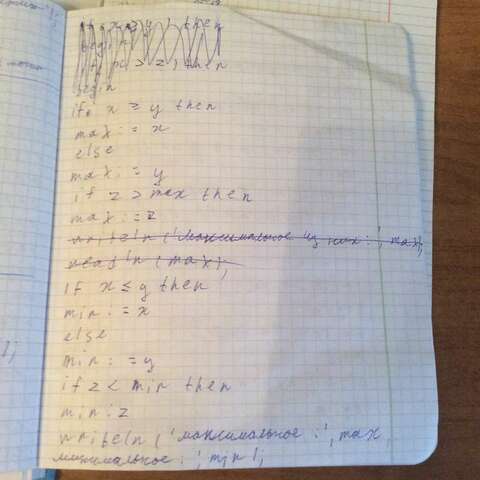 if x ≥ y then
begin
if x > z then
begin
if x ≥ y then
max: = x
else
max: = y
if z > max then
max: = z
writeln ('максимальное из них:', max);
readln (max);
If x ≤ y then
min: = x
else
min: = y
if z < min then
min: z
writeln ('максимальное:', max
минимальное:', min);